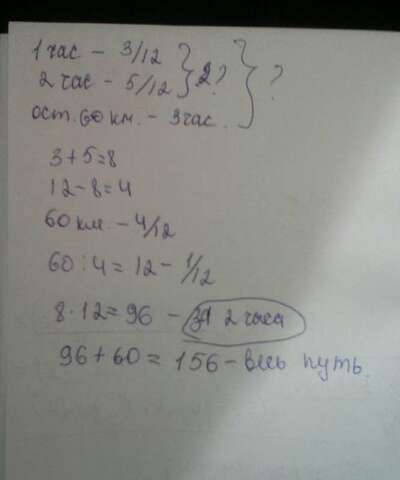 1 час - 3/12
2 час - 5/12 } 2? } ?
ост. 60 км. - 3 час.
3+5=8
12-8=4
60 км. - 4/12
60:4=12 - 1/12
8·12=96 - за 2 часа
96+60=156 - весь путь.